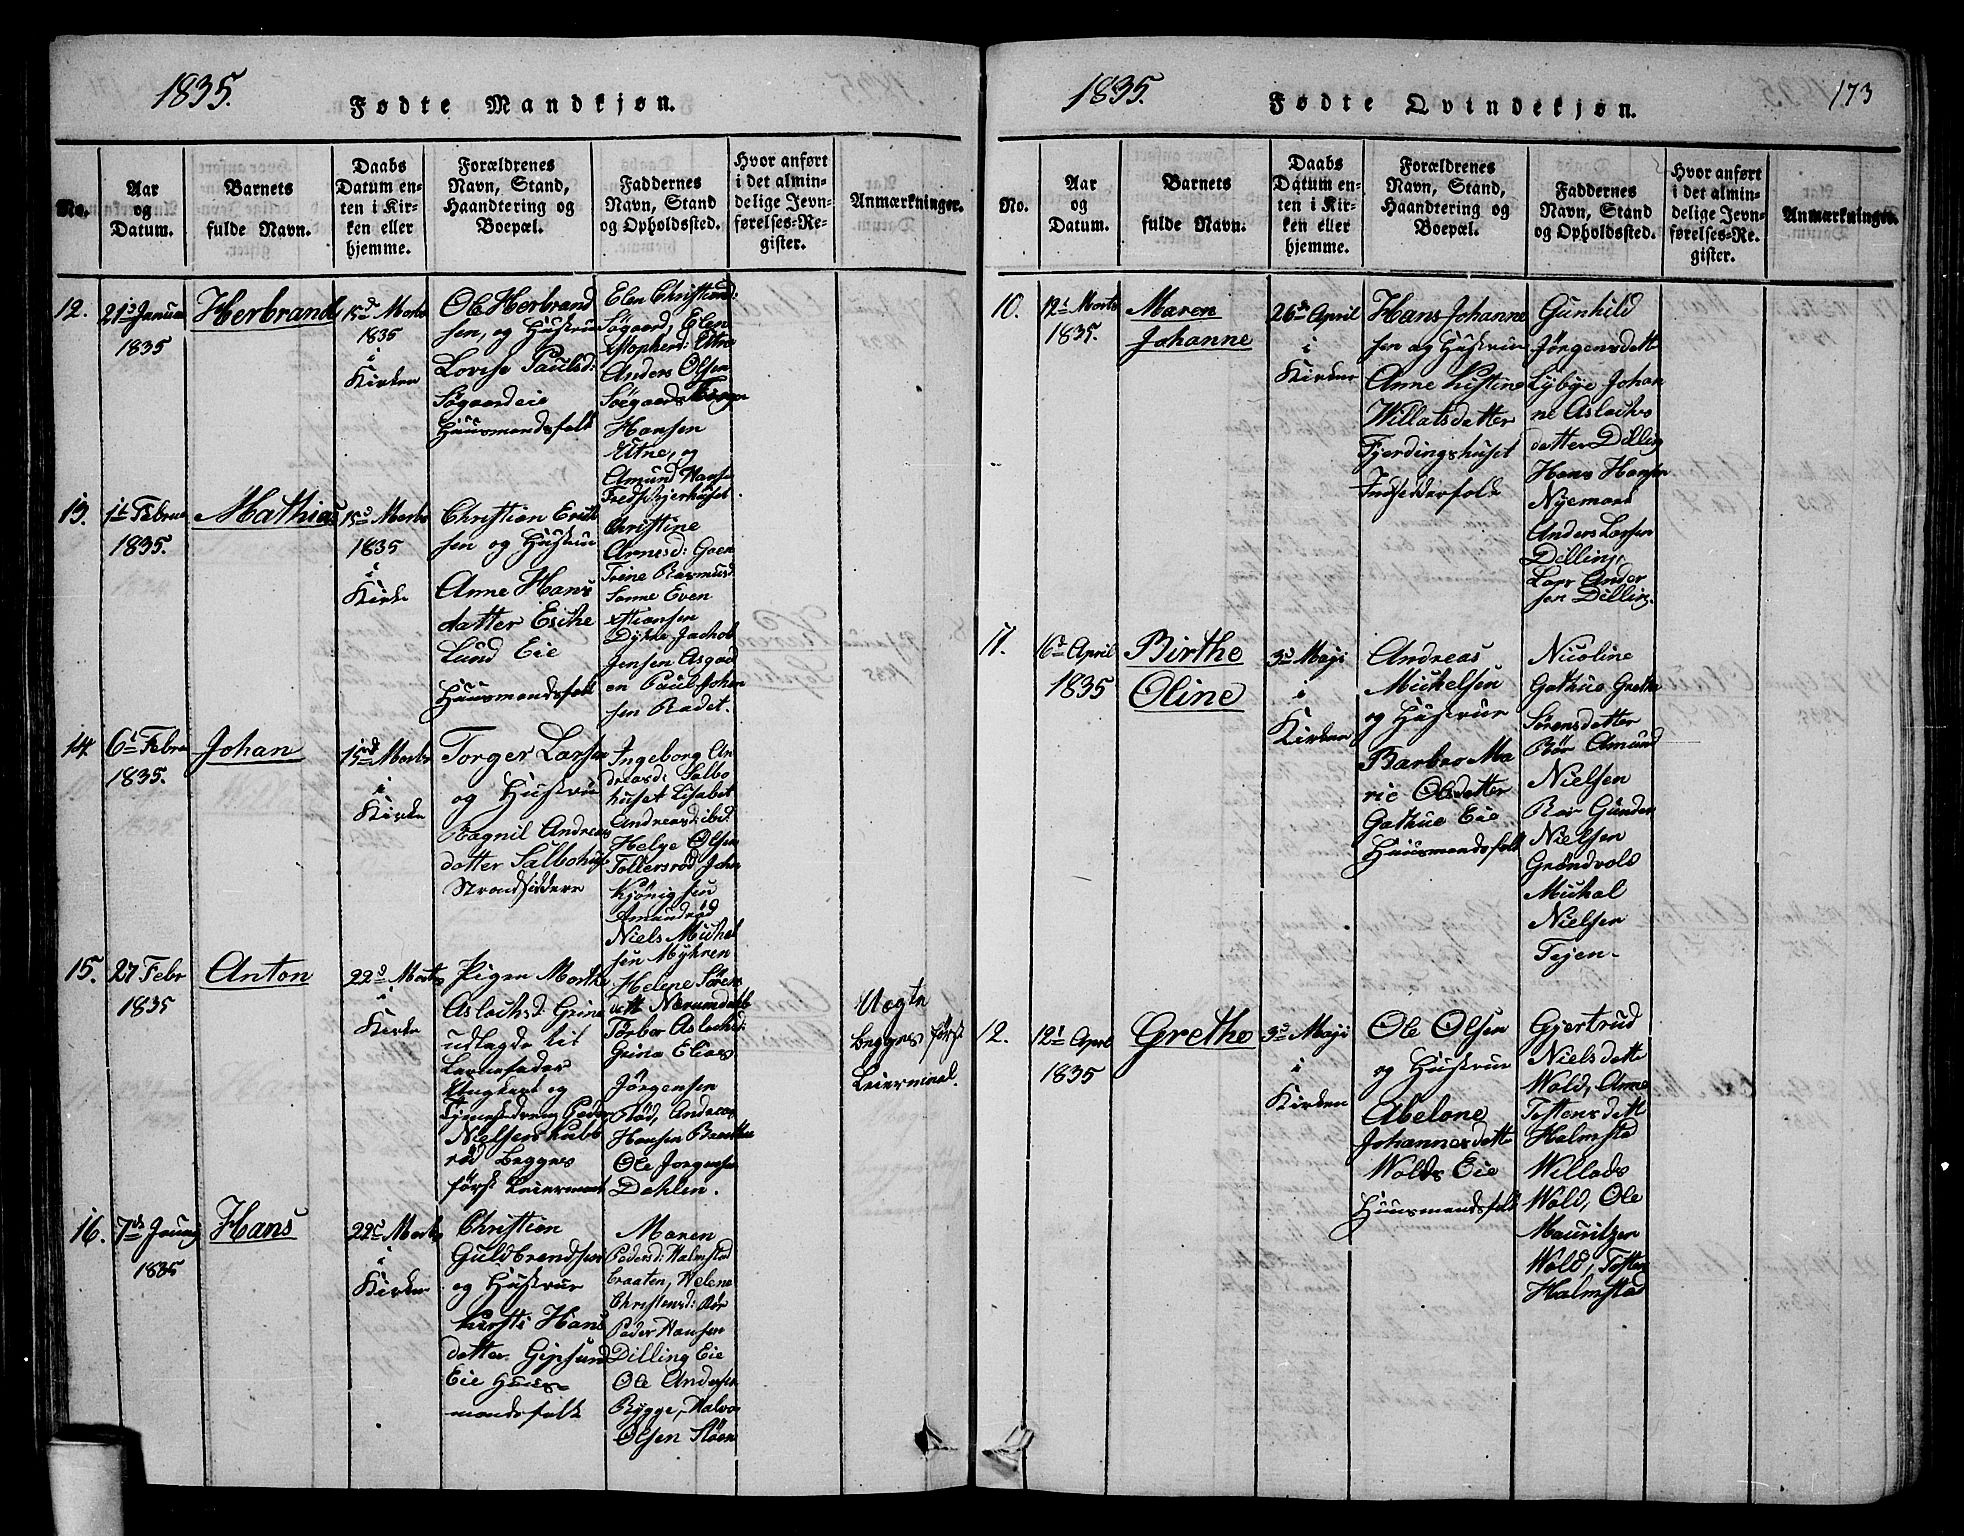 1835.
Fødte Mandkjøn.
No.
Aar
og
Datum.
Barnets
fulde Navn.
Daabs
Datum en-
ten i Kir-
ken eller
hjemme.
Forældrenes
Navn, Stand,
Haandtering og
Boepæl.
Faddernes
Navn, Stand
og Opholdssted.
Hvor anført
i det almin-
delige Jevn-
førelses-Re-
gister.
Anmærkninger.
12.
21s Januar
1835
Herbrand
15d Marts
1835
i
Kirken
Ole Herbrand
sen, og Hustrue
Lovise Paulsd:
Søgaardeie
Huusmandsfolk
Elen Christiand:
Søgaard, Elen
Utne
Anders Olsen
Søegaard,
Hansen
Utne, og
Amund Hans
13.
1t Februar
1835.
Mathias
15d Marts
1835
i
Kirke
Christian Erik
sen og Hustrue
Anne Hans
datter Eske
Lund Eie
Huusmandsfolk
Christine
Arnesd:
Trine Rasmusd
Sanne Even
Dykne Jachob
Jensen Asgad
en Paul Johan
sen Radet.
14.
6t Febru
1835.
Johan
15nd Marts
i
Kirke
Torger Larsen
og Hustrue
Ragnil Andreas
datter Salbohus
Strandsiddere
Ingeborg An
dreasd: Salbo
huset Lisabet
Andreasd: ibid
Helge Olsen
Tollersrød Johan
Amundrød
Niels Michel
sen Myhren
15.
27 Febr
1835
Anton
22d Marts
i
Kirke
Pigen Marthe
Aslachsd: Grine
udlagde til
Barnefader
Ungkarl og
Peder
Nielsen
rød begges
første Leiermaal
Helene Sören
datt Nærumdalb
Torbor Aslachsd:
Grina Elias
Jörgensen
Rød, Andreas
Hansen
Ole Jorgensen
Dahlen.
Uegte
begges först
Leiermaal.
16.
7de Januar
1835
Hans
22d Marts
i
Kirken
Christian
Guldbrendsen
og Hustrue
Kirsti Hans
datter. Gipsund
Eie Huus-
mandsfolk
Maren
Pedersd: Halmstad
braaten, Helene
Christensd: Rör
Peder Hansen
Dilling Eie
Ole Andersen
Rygge, Halvor
Olsen Støen
1835.
Fødte Qvindekjøn.
173
No.
Aar
og
Datum.
Barnets
fulde Navn.
Daabs
Datum en-
ten i Kir-
ken eller
hjemme.
Forældrenes
Navn, Stand,
Haandtering og
Boepæl.
Faddernes
Navn, Stand
og Opholdssted.
Hvor anført
i det almin-
delige Jevn-
førelses-Re-
gister.
Anmærkninger.
10.
12t Marts
1835.
Maren
Johanne
26d April
i
Kirken
Hans Johanne
sen og Hustrue
Anne Kistine
Willatsdatter
Fjerdingshuset
Indsidderfolk
Gunhild
Jørgensdatt
Lybye Johan
ne Aslachs
datter Dilling
Hans Hansen
Nyemark
Anders Larsen
Dilling,
Lars Ander
sen Dilling.
11.
16d April
1835
Birthe
Oline
3d Maji
i
Kirken
Andreas
Michelsen
og Hustrue
Barbro Ma
rie Olsdatter
Gathue Eie
Huusmandsfolk
Nicoline
Gathue Grethe
Sörensdatter
Rör Amund
Nielsen
Rör Gunder
Nielsen
Gröndvold
Michal
Nielsen
Tejen.
12.
12t April
1835
Grethe
3d Maji
i
Kirken
Ole Olsen
og Hustrue
Abelone
Johannesdatte
Wolds Eie
Huusmandsfolk
Gjertrud
Nielsdatte
Wold, Anne
Tostensdatt
Halmstad
Willads
Wold, Ole
Mauritzen
Wold, Tosten
Halmstad